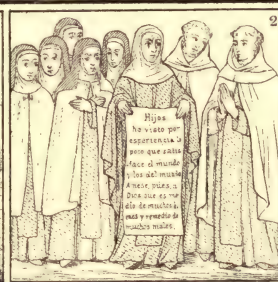 2
Hijos
he visto por
esperiencia lo
poco que satis
face el mundo
y los del mundo
Anese, pues, a
Dios que es me
dio de muchos
y remedio de
muchos males.